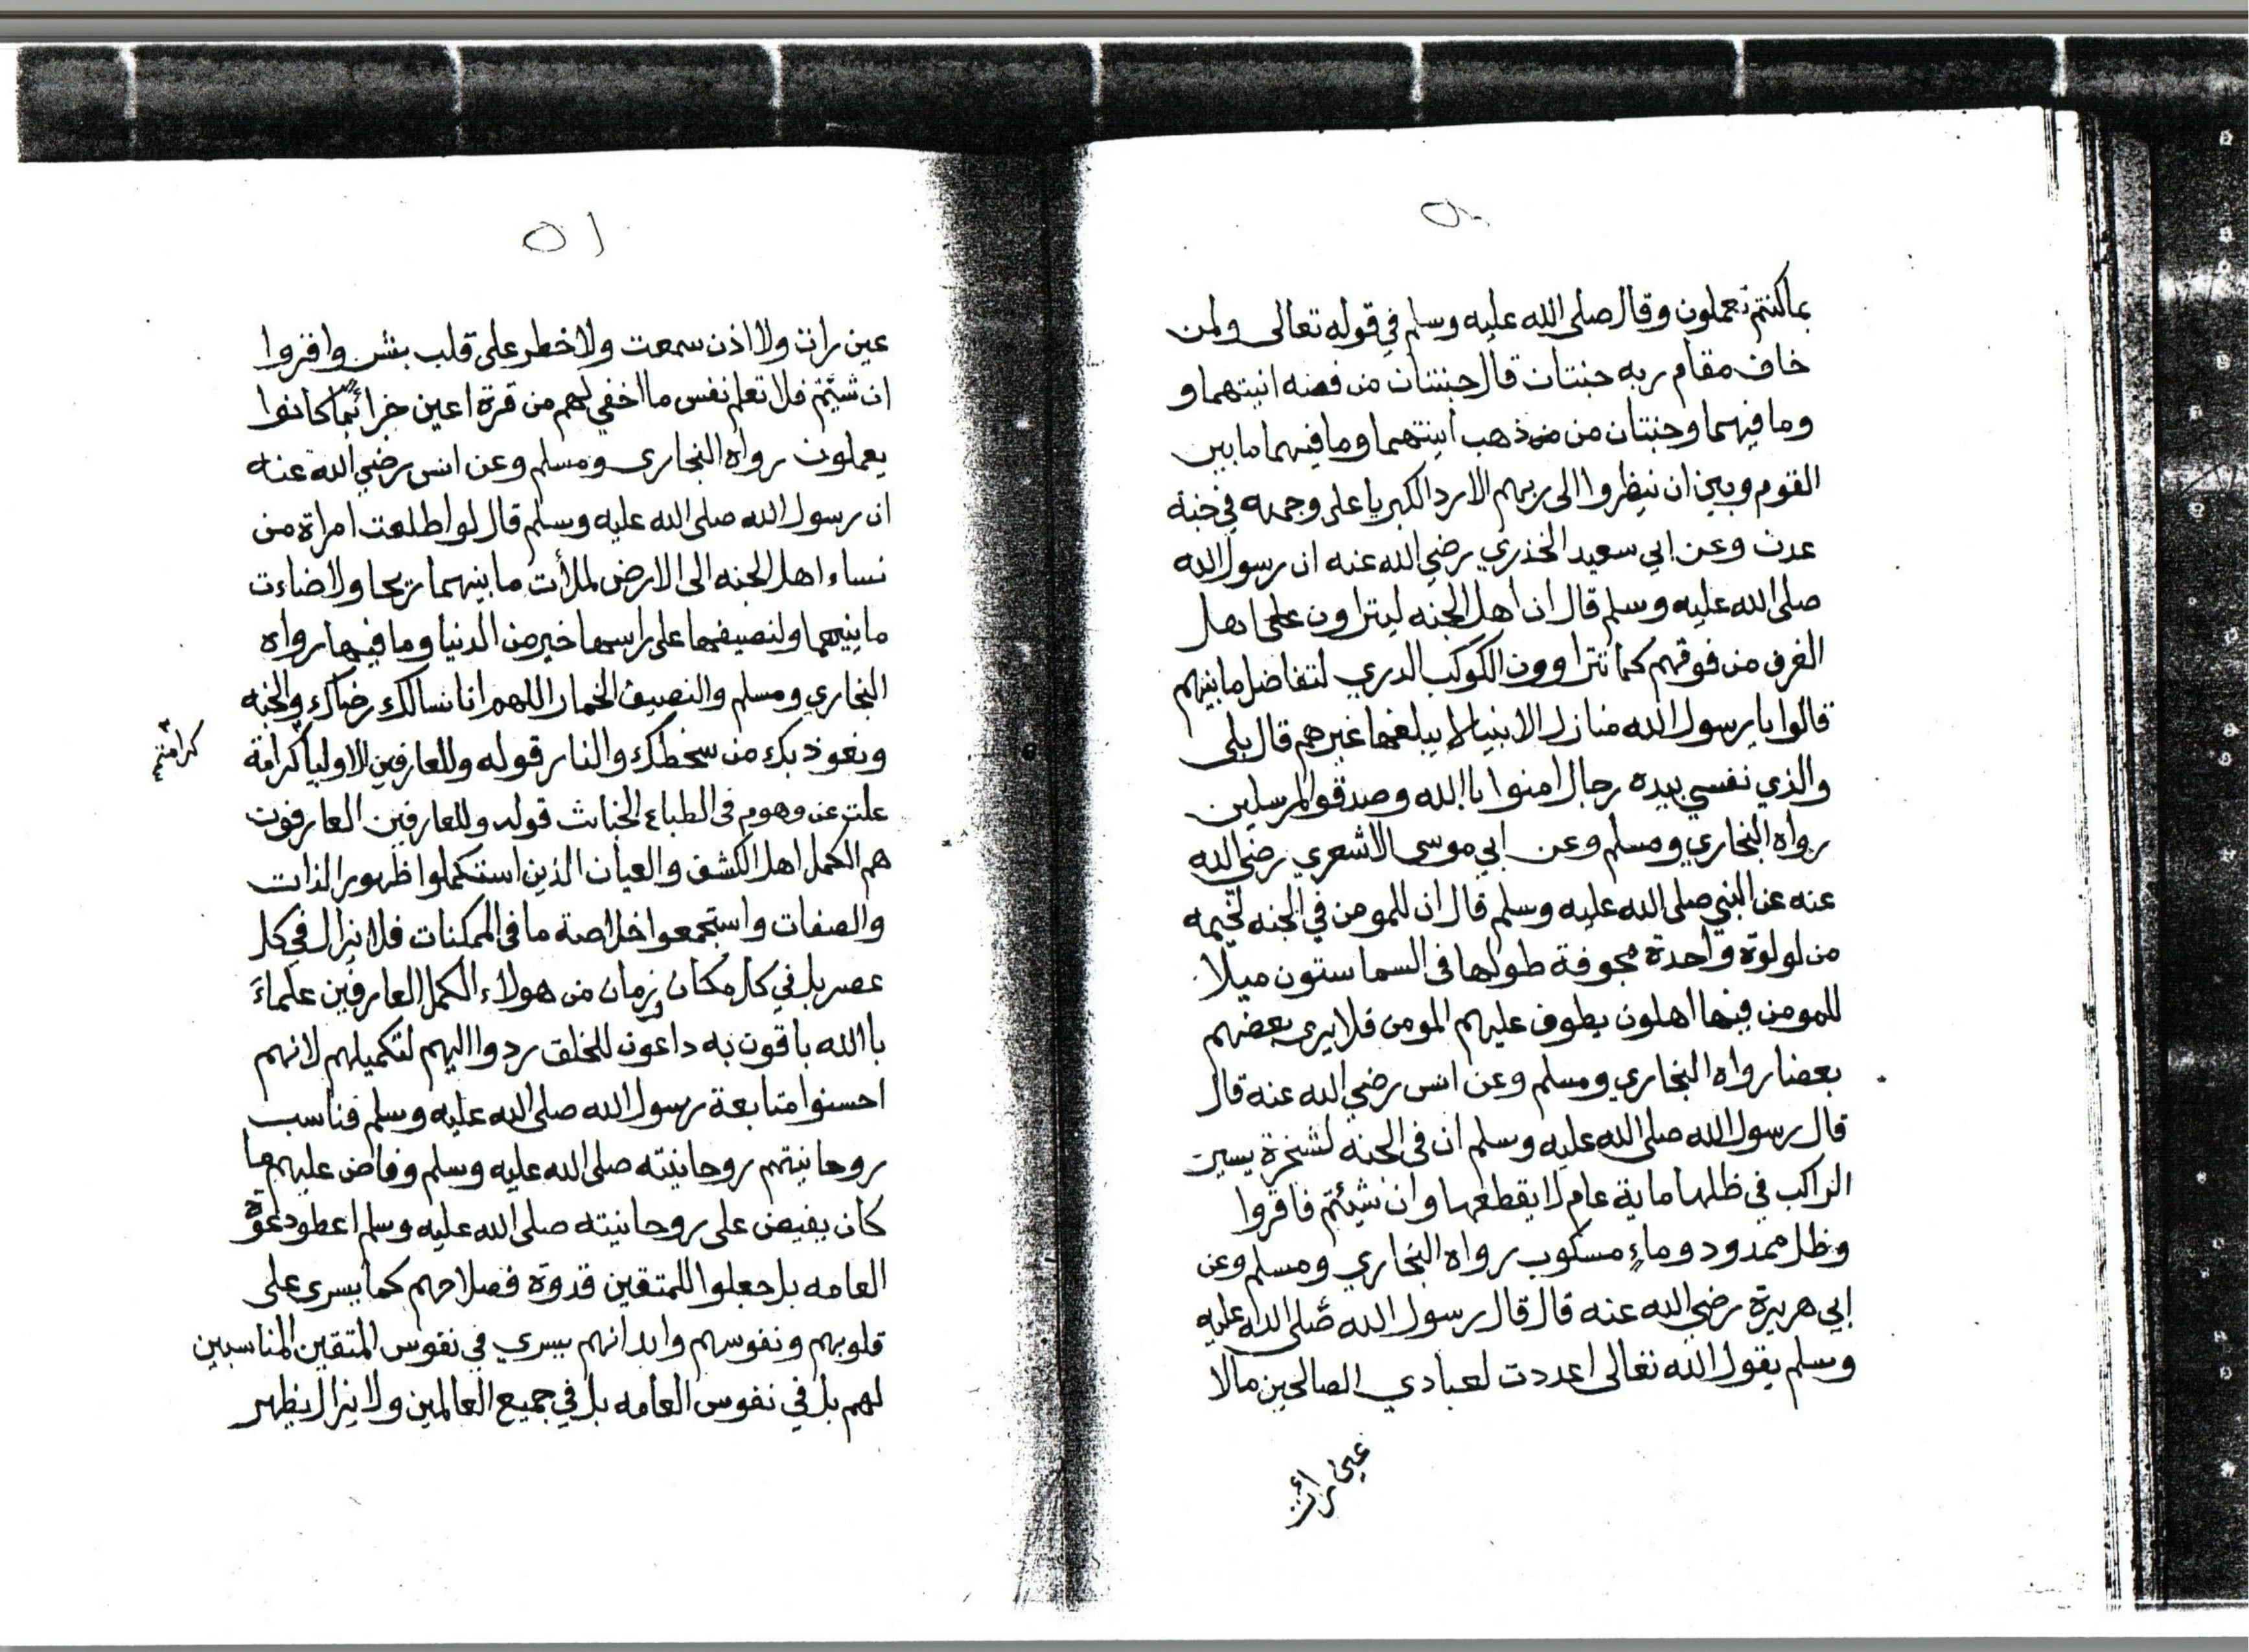 ٥٠
بماكنتم تعملون وقال صلى الله عليه وسلم في قوله تعالى ولمن
خاف مقام ربه جنتان قال جنتان من فضه انيتهما و
وما فيهما وجنتان من من ذهب انيتهما وما فيهما ما بين
القوم وبين ان ينظروا الى ربهم الا ردا الكبريا على وجهه في جنة
عدن وعن ابي سعيد الخذري رضي الله عنه ان رسول الله
صلى الله عليه وسلم قال ان اهل الجنه ليتراون على اهل
الغرف من فوقهم كما تتراوون الكوكب الدري لتفاضل ما بينهم
قالوا يا رسول الله منازل الانبيا لا يبلغها غيرهم قال بلى
والذي نفسي بيده رجال امنوا باالله وصدقوا المرسلين
رواه البخاري ومسلم وعن ابي موسى الاشعري رضي الله
عنه عن النبي صلى الله عليه وسلم قال ان للمومن في الجنه لخيمه
من لولوة واحدة مجوفة طولها في السما ستون ميلا
للمومن فيها اهلون يطوف عليهم المومن فلا يرى بعضهم
بعضا رواه البخاري ومسلم وعن انس رضي الله عنه قال
قال رسول الله صلى الله عليه وسلم ان في الجنة لشجرة يسير
الراكب في ظلها ماية عام لا يقطعها وان شيئتم فاقروا
وظل ممدود وماء مسكوب رواه البخاري ومسلم وعن
ابي هريرة رضي الله عنه قال قال رسول الله صلى الله عليه
وسلم يقول الله تعالى اعددت لعبادي الصالحين مالا
عين رأت
٥١
عين رات ولا اذن سمعت ولا خطر على قلب بشر واقروا
ان شيئتم فلا تعلم نفس ما اخفي لهم من قرة اعين جزاء بما كانوا
يعملون رواه البخاري ومسلم وعن انس رضي الله عنه
ان رسول الله صلى الله عليه وسلم قال لو اطلعت امراة من
نساء اهل الجنه الى الارض لملأت ما بينهما ريحا ولاضاءت
ما بينهما ولنصيفها على راسها خير من الدنيا وما فيها رواه
البخاري ومسلم والنصيف الخمار اللهم انا نسالك رضاك والجنه
ونعوذ بك من سخطك والنار قوله وللعارفين الاوليا كرامة
كرامتهم
علت عن وهوم في الطباع الخبائث قوله وللعارفين العارفون
هم الكمل اهل الكشف والعيان الذين استكملوا ظهور الذات
والصفات واستجمعوا خلاصة ما في الممكنات فلا يزال في كل
عصر بل في كل مكان وزمان من هولاء الكمل العارفين علماء
باالله باقون به داعون للخلق ردوا اليهم لتكميلهم لانهم
احسنوا متابعة رسول الله صلى الله عليه وسلم فناسب
روحانيتهم روحانيته صلى الله عليه وسلم وفاض عليهم ما
كان يفيض على روحانيته صلى الله عليه وسلم اعطو دعوة
العامه بل جعلوا للمتقين قدوة فصلاحهم كما يسرى على
قلوبهم ونفوسهم وابدانهم يسري في نفوس المتقين المناسبين
لهم بل في نفوس العامه بل في جميع العالمين ولا يزال يظهر